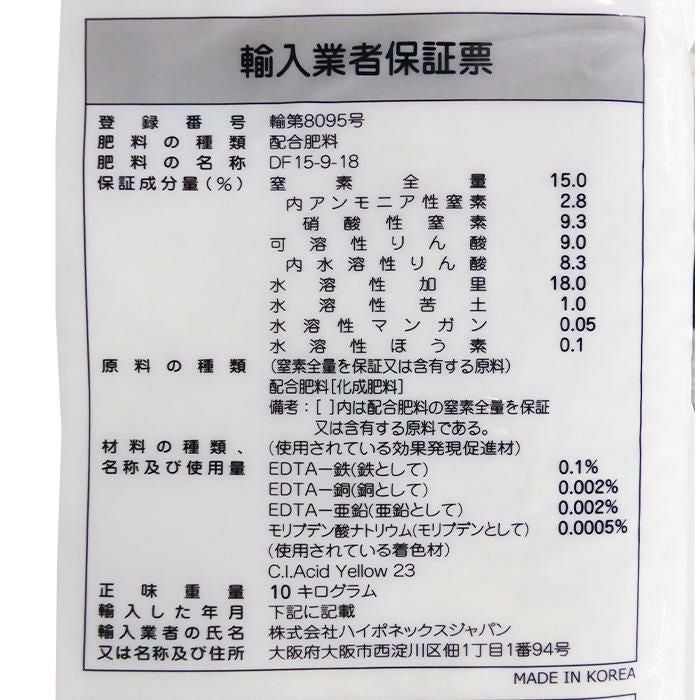 輸入業者保証票
登録番号 輸第8095号
肥料の種類 配合肥料
肥料の名称 DF15-9-18
保証成分量(%) 窒素全量 15.0
内アンモニア性窒素 2.8
硝酸性窒素 9.3
可溶性りん酸 9.0
内水溶性りん酸 8.3
水溶性加里 18.0
水溶性苦土 1.0
水溶性マンガン 0.05
水溶性ほう素 0.1
原料の種類 (窒素全量を保証又は含有する原料)
配合肥料[化成肥料]
備考:[ ]内は配合肥料の窒素全量を保証
又は含有する原料である。
材料の種類、 (使用されている効果発現促進材)
名称及び使用量 EDTAー鉄(鉄として) 0.1%
EDTAー銅(銅として) 0.002%
EDTAー亜鉛(亜鉛として) 0.002%
モリブデン酸ナトリウム(モリブデンとして) 0.0005%
(使用されている着色材)
C.I.Acid Yellow 23
正味重量 10 キログラム
輸入した年月 下記に記載
輸入業者の氏名 株式会社ハイポネックスジャパン
又は名称及び住所 大阪府大阪市西淀川区佃1丁目1番94号
MADE IN KOREA